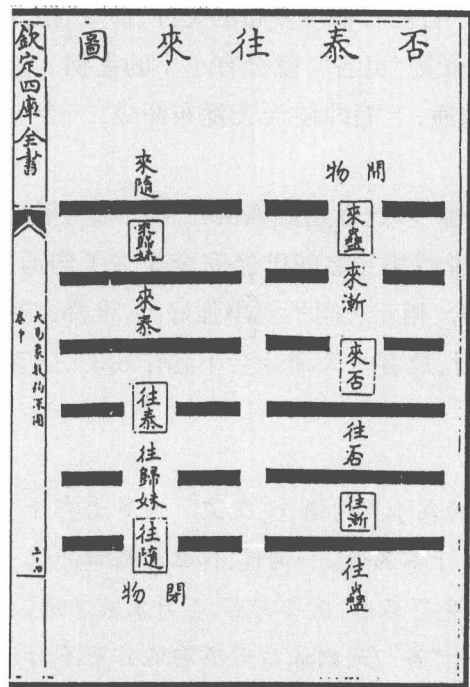 否泰往來圖
開物
來蠱
來漸
來否
往否
往漸
往蠱
來隨
來歸妹
來泰
往泰
往歸妹
往隨
閉物
欽定四庫全書
大易象數鈎深圖
卷中